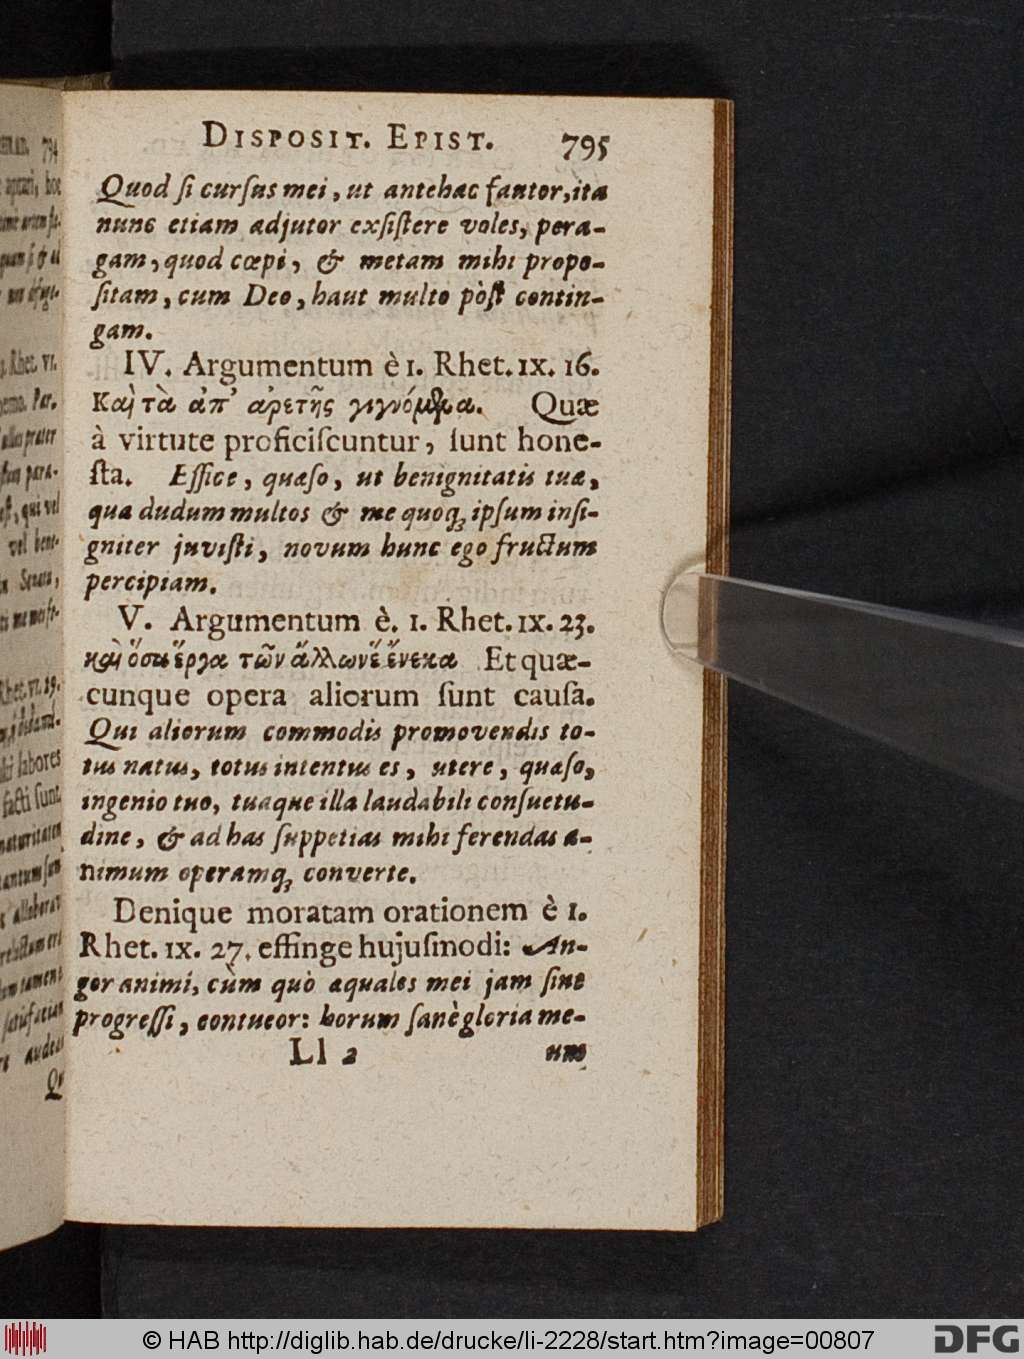 DISPOSIT. EPIST. 795
Quod ſi curſus mei, ut antehac fautor, ita
nunc etiam adjutor exſiſtere voles, pera-
gam, quod cœpi, & metam mihi propo-
ſitam, cum Deo, haut multo pòſt contin-
gam.
IV. Argumentum è 1. Rhet. IX. 16.
Καὶ τὰ ἀπ' ἀρετῆς γιγνόμενα. Quæ
à virtute proficiſcuntur, ſunt hone-
ſta. Effice, quæſo, ut benignitatis tuæ,
qua dudum multos & me quoq; ipſum inſi-
gniter juviſti, novum hunc ego fructum
percipiam.
V. Argumentum è. 1. Rhet. IX. 23.
καὶ ὅσα ἔργα τῶν ἄλλων ἕνεκα Et quæ-
cunque opera aliorum ſunt cauſâ.
Qui aliorum commodis promovendis to-
tus natus, totus intentus es, utere, quæſo,
ingenio tuo, tuaque illa laudabili conſuetu-
dine, & ad has ſuppetias mihi ferendas a-
nimum operamq; converte.
Denique moratam orationem è 1.
Rhet. IX. 27. effinge hujuſmodi: An-
gor animi, cùm quò æquales mei jam ſint
progreſſi, contueor: horum ſanè gloria me-
Ll 2 um
© HAB http://diglib.hab.de/drucke/li-2228/start.htm?image=00807
DFG